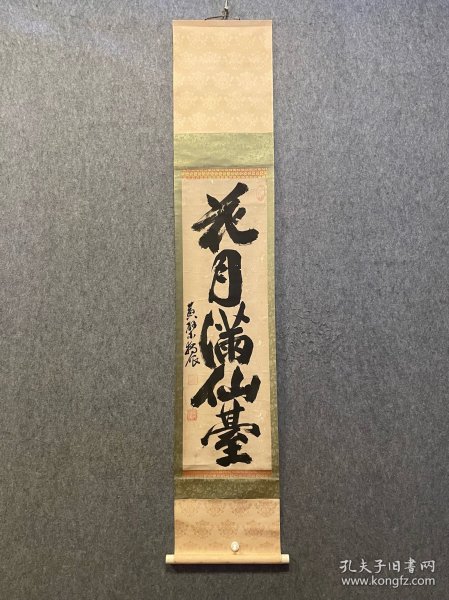 花月滿仙臺
黄檗
孔夫子旧书网
www.kongfz.com